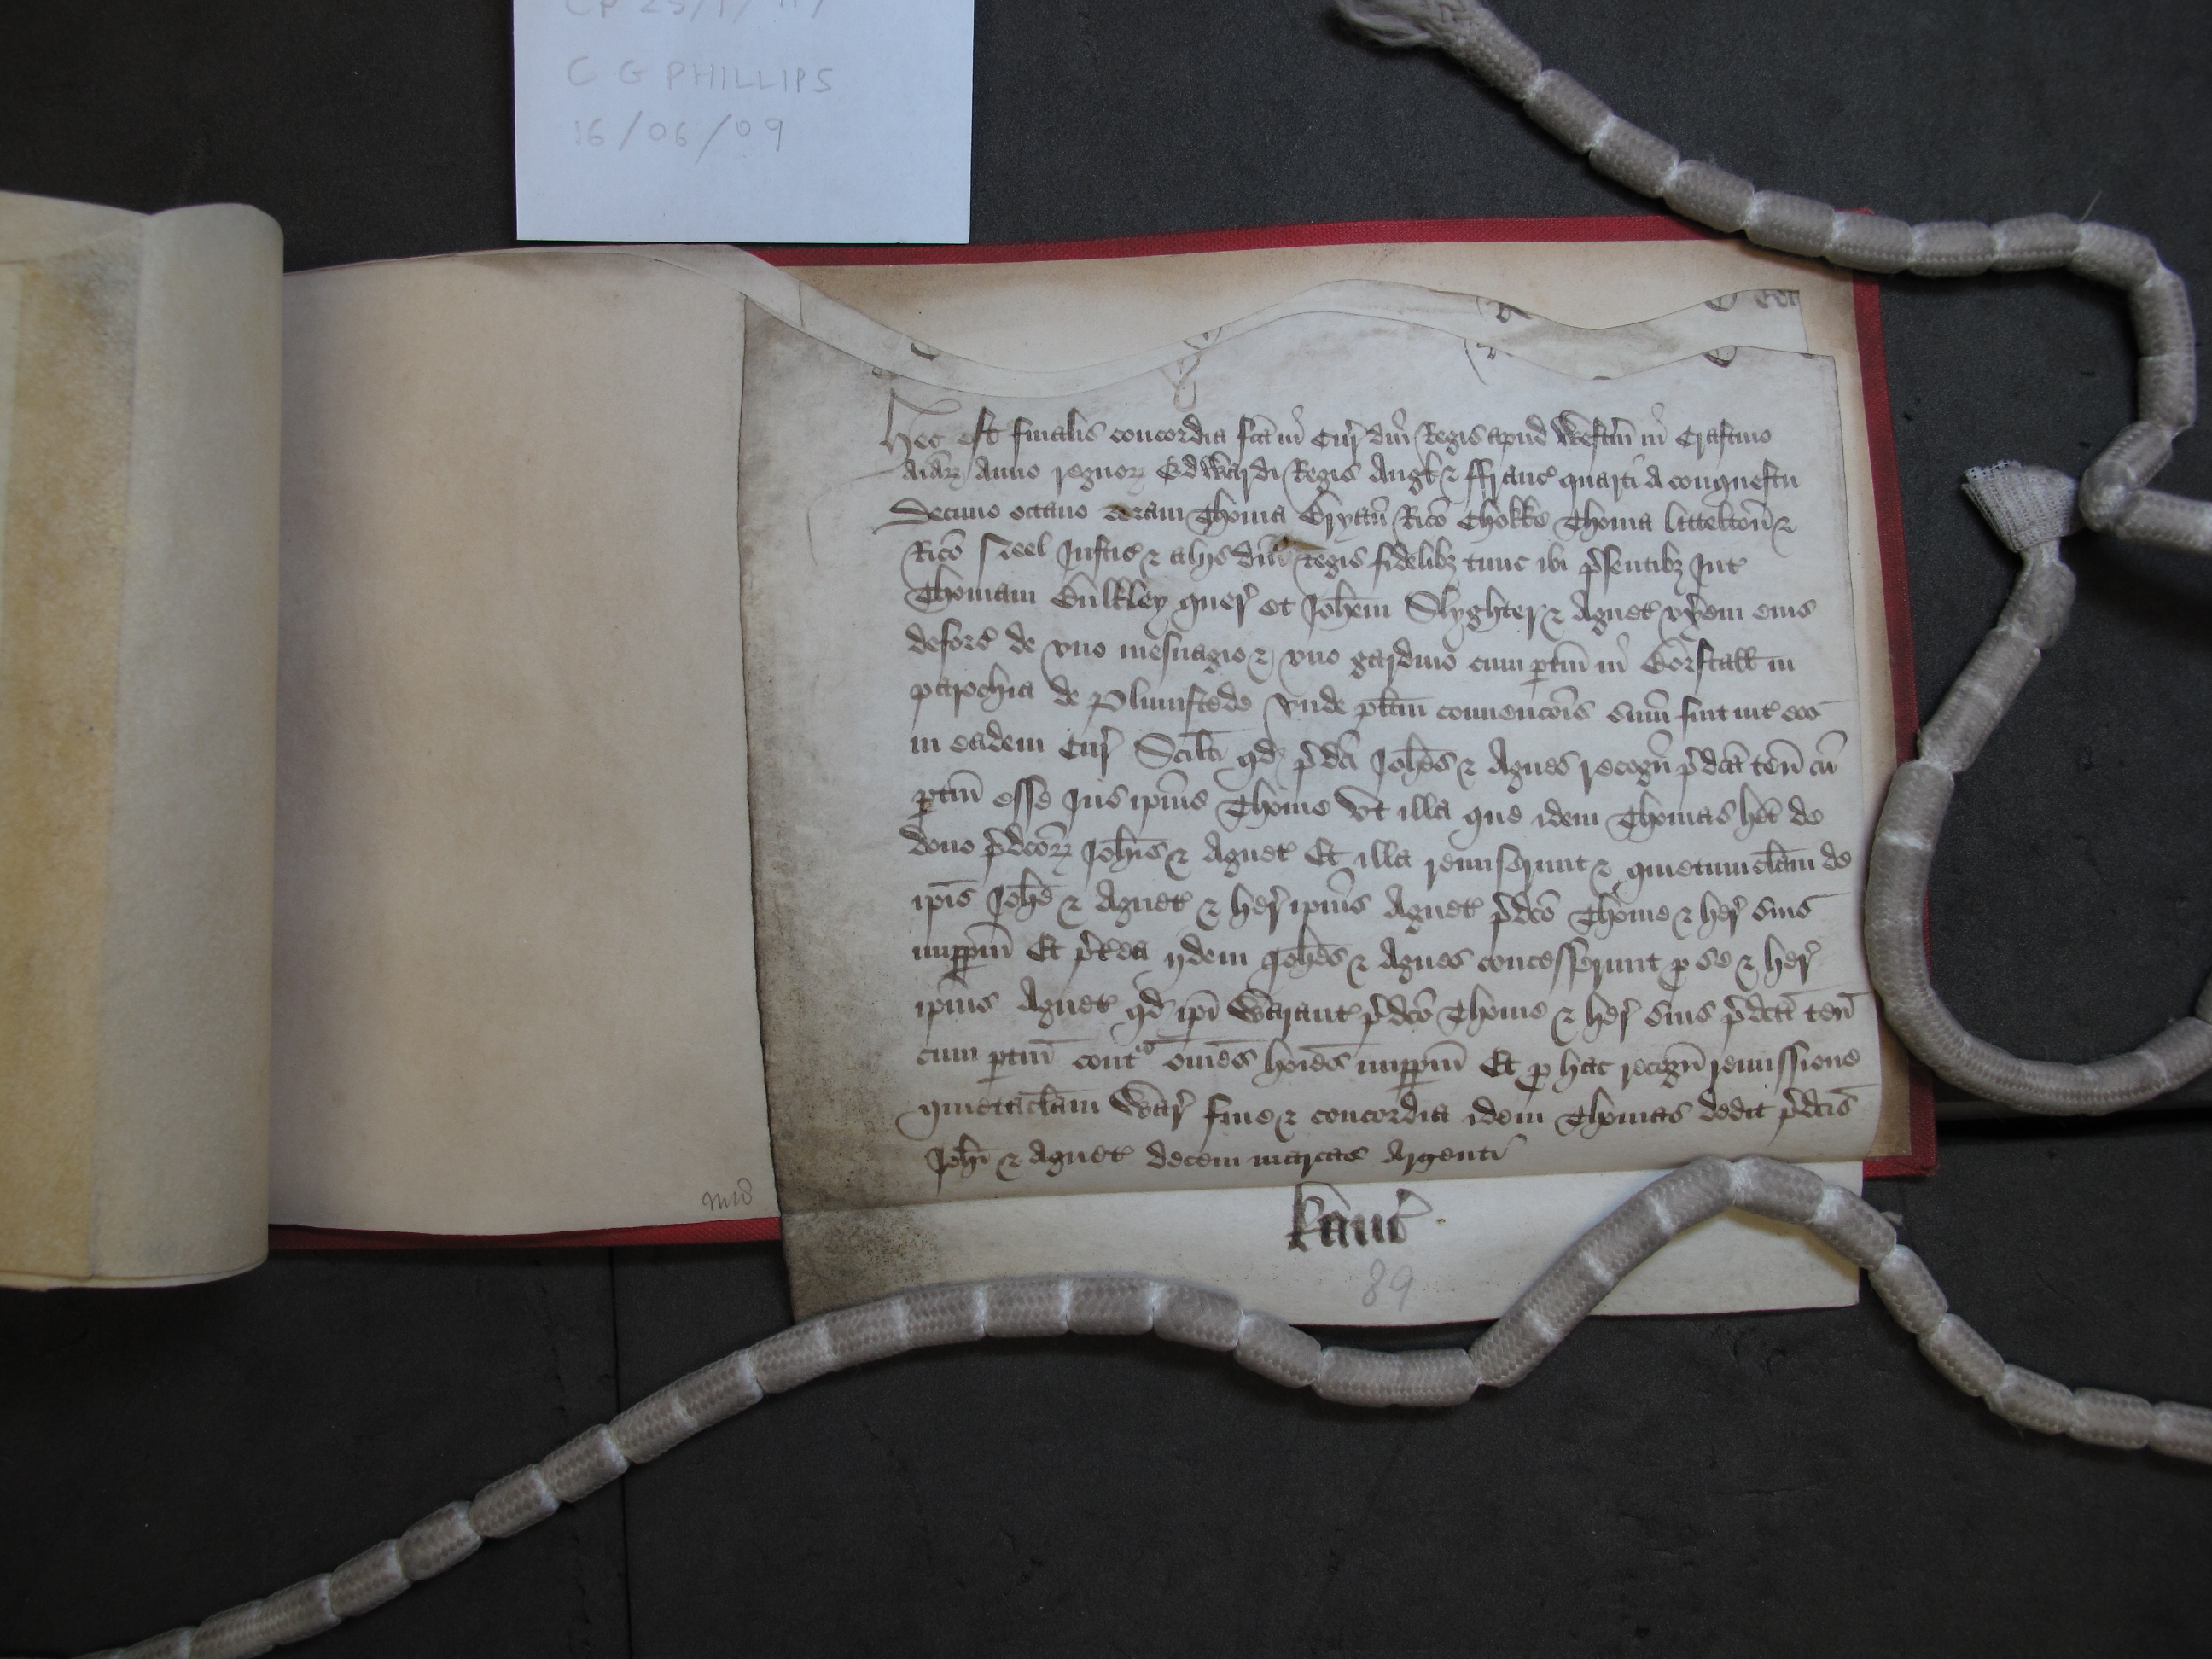 C G PHILLIPS
16/06/09
Hec est finalis concordia fcā in Cur̛ dn̄i Regis apud Westm̄ in Crastino
Aīar̄ꝝ Anno regnoꝝ Edwardi Regis Angl̄ ⁊ ffranc̛ quarti a conquestu
Decimo octauo coram Thoma Bryan̄ Ric̄o Chokke Thoma Littelton̄ ⁊
Ric̄o Neel Justic̛ ⁊ alijs dn̄i Regis fidelibꝫ tunc ibi p̛sentibꝫ Int̛
Thomam Bulkley quer̛ et Joh̄em Slyghter ⁊ Agnet̛ vx̛em eius
deforc̛ de vno mesuagio ⁊ vno gardino cum ꝑtin̄ in Borstall in
parochia de Plumstede Vnde pl̄itm̄ conuenc̄ois sum̄ fuit int̛ eos
in eadem Cur̛ Scil̄t qd̛ p̛dc̄i Joh̄es ⁊ Agnes recogn̄ p̛dc̄a ten̄ cū
ꝑtin̄ esse Jus ip̄ius Thome vt illa que idem Thomas h̄et de
dono p̛dc̄oꝝ Joh̄is ⁊ Agnet̛ Et illa remiserunt ⁊ quietumclam̄ de
ip̄is Joh̄e ⁊ Agnet̛ ⁊ her̛ ip̄ius Agnet̛ p̛dc̄o Thome ⁊ her̛ suis
imꝑpm̄ Et p̛t̛ea ijdem Joh̄es ⁊ Agnes concesserunt ꝓ se ⁊ her̛
ip̄ius Agnet̛ qd̛ ip̄i Warant̛ p̛dc̄o Thome ⁊ her̛ suis p̛dc̄a ten̄
cum ꝑtin̄ contᵃ om̄es ho̅ies imꝑpm̄ Et ꝓ hac recogn̄ remissione
quietaclam̄ War̛ fine ⁊ concordia idem Thomas dedit p̛dc̄is
Joh̄i ⁊ Agnet̛ decem marcas Argenti
kanc̛
89